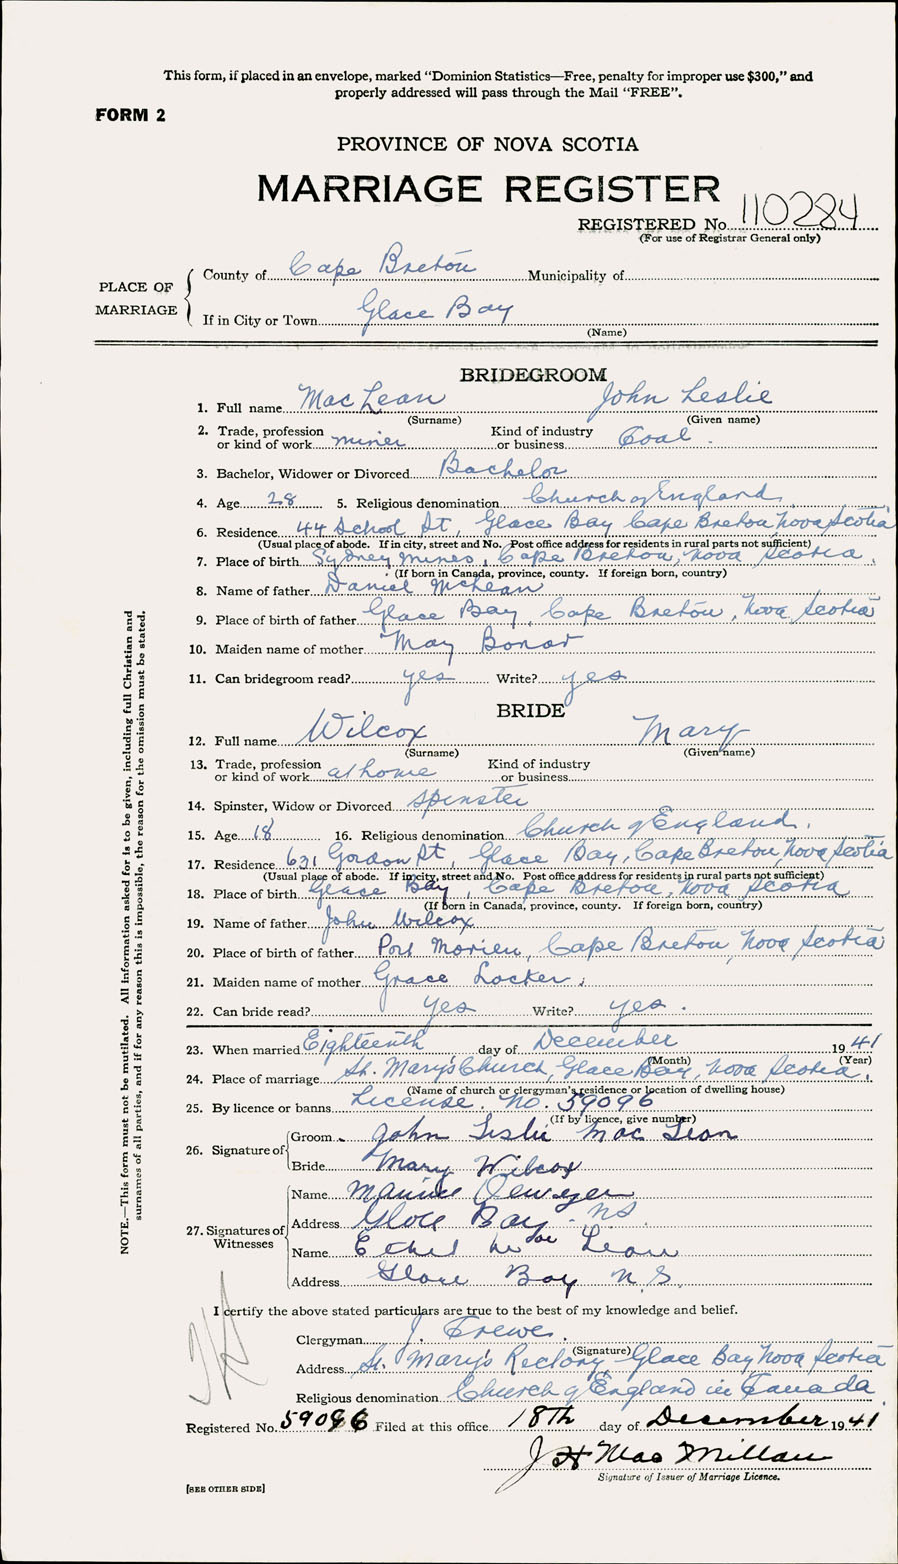 This form, if placed in an envelope, marked “Dominion Statistics—Free, penalty for improper use $300,” and
properly addressed will pass through the Mail “FREE”.
FORM 2
PROVINCE OF NOVA SCOTIA
MARRIAGE REGISTER
REGISTERED No. 110284
(For use of Registrar General only)
PLACE OF MARRIAGE
County of Cape Breton Municipality of
If in City or Town Glace Bay
(Name)
BRIDEGROOM
1. Full name MacLean John Leslie
(Surname) (Given name)
2. Trade, profession or kind of work miner Kind of industry or business Coal.
3. Bachelor, Widower or Divorced Bachelor
4. Age 28 5. Religious denomination Church of England
6. Residence 44 School St, Glace Bay Cape Breton Nova Scotia
(Usual place of abode. If in city, street and No. Post office address for residents in rural parts not sufficient)
7. Place of birth Sydney Mines, Cape Breton, Nova Scotia.
(If born in Canada, province, county. If foreign born, country)
8. Name of father Daniel McLean
9. Place of birth of father Glace Bay, Cape Breton, Nova Scotia
10. Maiden name of mother May Bonar
11. Can bridegroom read? yes Write? yes
BRIDE
12. Full name Wilcox Mary
(Surname) (Given name)
13. Trade, profession or kind of work at home Kind of industry or business
14. Spinster, Widow or Divorced spinster
15. Age 18 16. Religious denomination Church of England.
17. Residence 631 Gordon St, Glace Bay, Cape Breton, Nova Scotia
(Usual place of abode. If in city, street and No. Post office address for residents in rural parts not sufficient)
18. Place of birth Glace Bay, Cape Breton, Nova Scotia
(If born in Canada, province, county. If foreign born, country)
19. Name of father John Wilcox
20. Place of birth of father Port Morien, Cape Breton, Nova Scotia
21. Maiden name of mother Grace Locker.
22. Can bride read? yes Write? yes.
23. When married Eighteenth day of December 1941
(Month) (Year)
24. Place of marriage St. Mary's Church, Glace Bay, Nova Scotia.
(Name of church or clergyman's residence or location of dwelling house)
25. By licence or banns License. No. 59096
(If by licence, give number)
26. Signature of
Groom John Leslie MacLean
Bride Mary Wilcox
27. Signatures of Witnesses
Name
Address Glace Bay. NS
Name Ethel MacLean
Address Glace Bay N.S.
I certify the above stated particulars are true to the best of my knowledge and belief.
Clergyman J. Crewe.
(Signature)
Address St. Mary's Rectory Glace Bay Nova Scotia
Religious denomination Church of England in Canada
Registered No. 59096 Filed at this office 18th day of December 1941
J H MacMillan
Signature of Issuer of Marriage Licence.
[SEE OTHER SIDE]
NOTE.—This form must not be mutilated. All information asked for is to be given, including full Christian and
surnames of all parties, and if for any reason this is impossible, the reason for the omission must be stated.